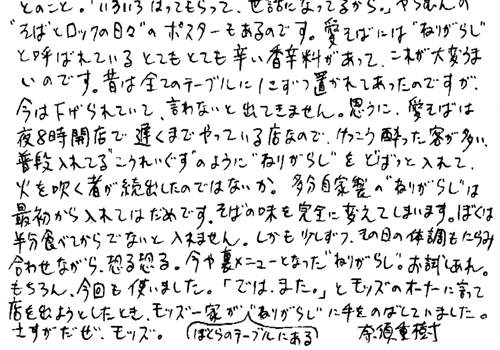 とのこと。「いろいろはってもらって、世話になってるから。」やっちんの
"そばとロックの日々"のポスターもあるのです。愛そばには"ねりがらし"
と呼ばれているとてもとても辛い香辛料があって、これが大変うま
いのです。昔は全てのテーブルに1こずつ置かれてあったのですが、
今は下げられていて、言わないと出てきません。思うに、愛そばは
夜8時開店で遅くまでやっている店なので、けっこう酔った客が多い、
普段入れてる"こうれいぐす"のように"ねりがらし"をどばっと入れて、
火を吹く者が続出したのではないか。多分自家製の"ねりがらし"は
最初から入れてはだめです。そばの味を完全に変えてしまいます。ぼくは
半分食べてからでないと入れません。しかも少しずつ、その日の体調もにらみ
合わせながら、恐る恐る。今や裏メニューとなった"ねりがらし"。お試しあれ。
もちろん、今回も使いました。「では、また。」とモッズのオーナーに言って
店を出ようとしたとき、モッズ一家が"ねりがらし"に手をのばしていました。
さすがだぜ、モッズ。(ぼくらのテーブルにある) 奈須重樹